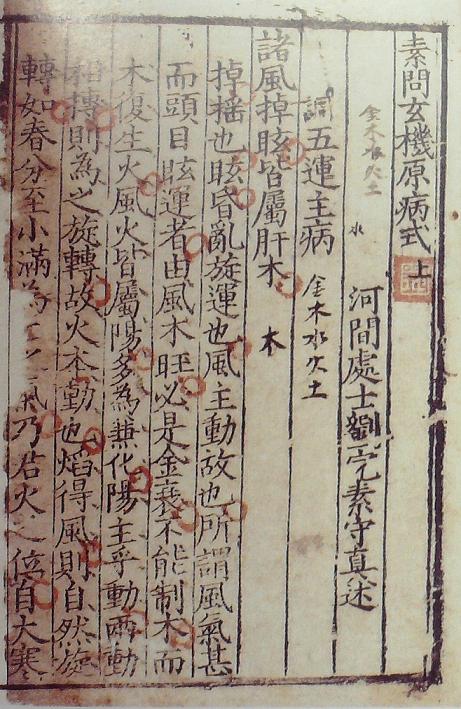 素問玄機原病式 上
金木水火土 水
河間處士劉完素守真述
五運主病 金木水火土
諸風掉眩皆屬肝木 木
掉搖也眩昏亂旋運也風主動故也所謂風氣甚
而頭目眩運者由風木旺必是金衰不能制木而
木復生火風火皆屬陽多為兼化陽主乎動兩動
相摶則為之旋轉故火本動也焰得風則自然旋
轉如春分至小滿為二之氣乃君火之位自大寒